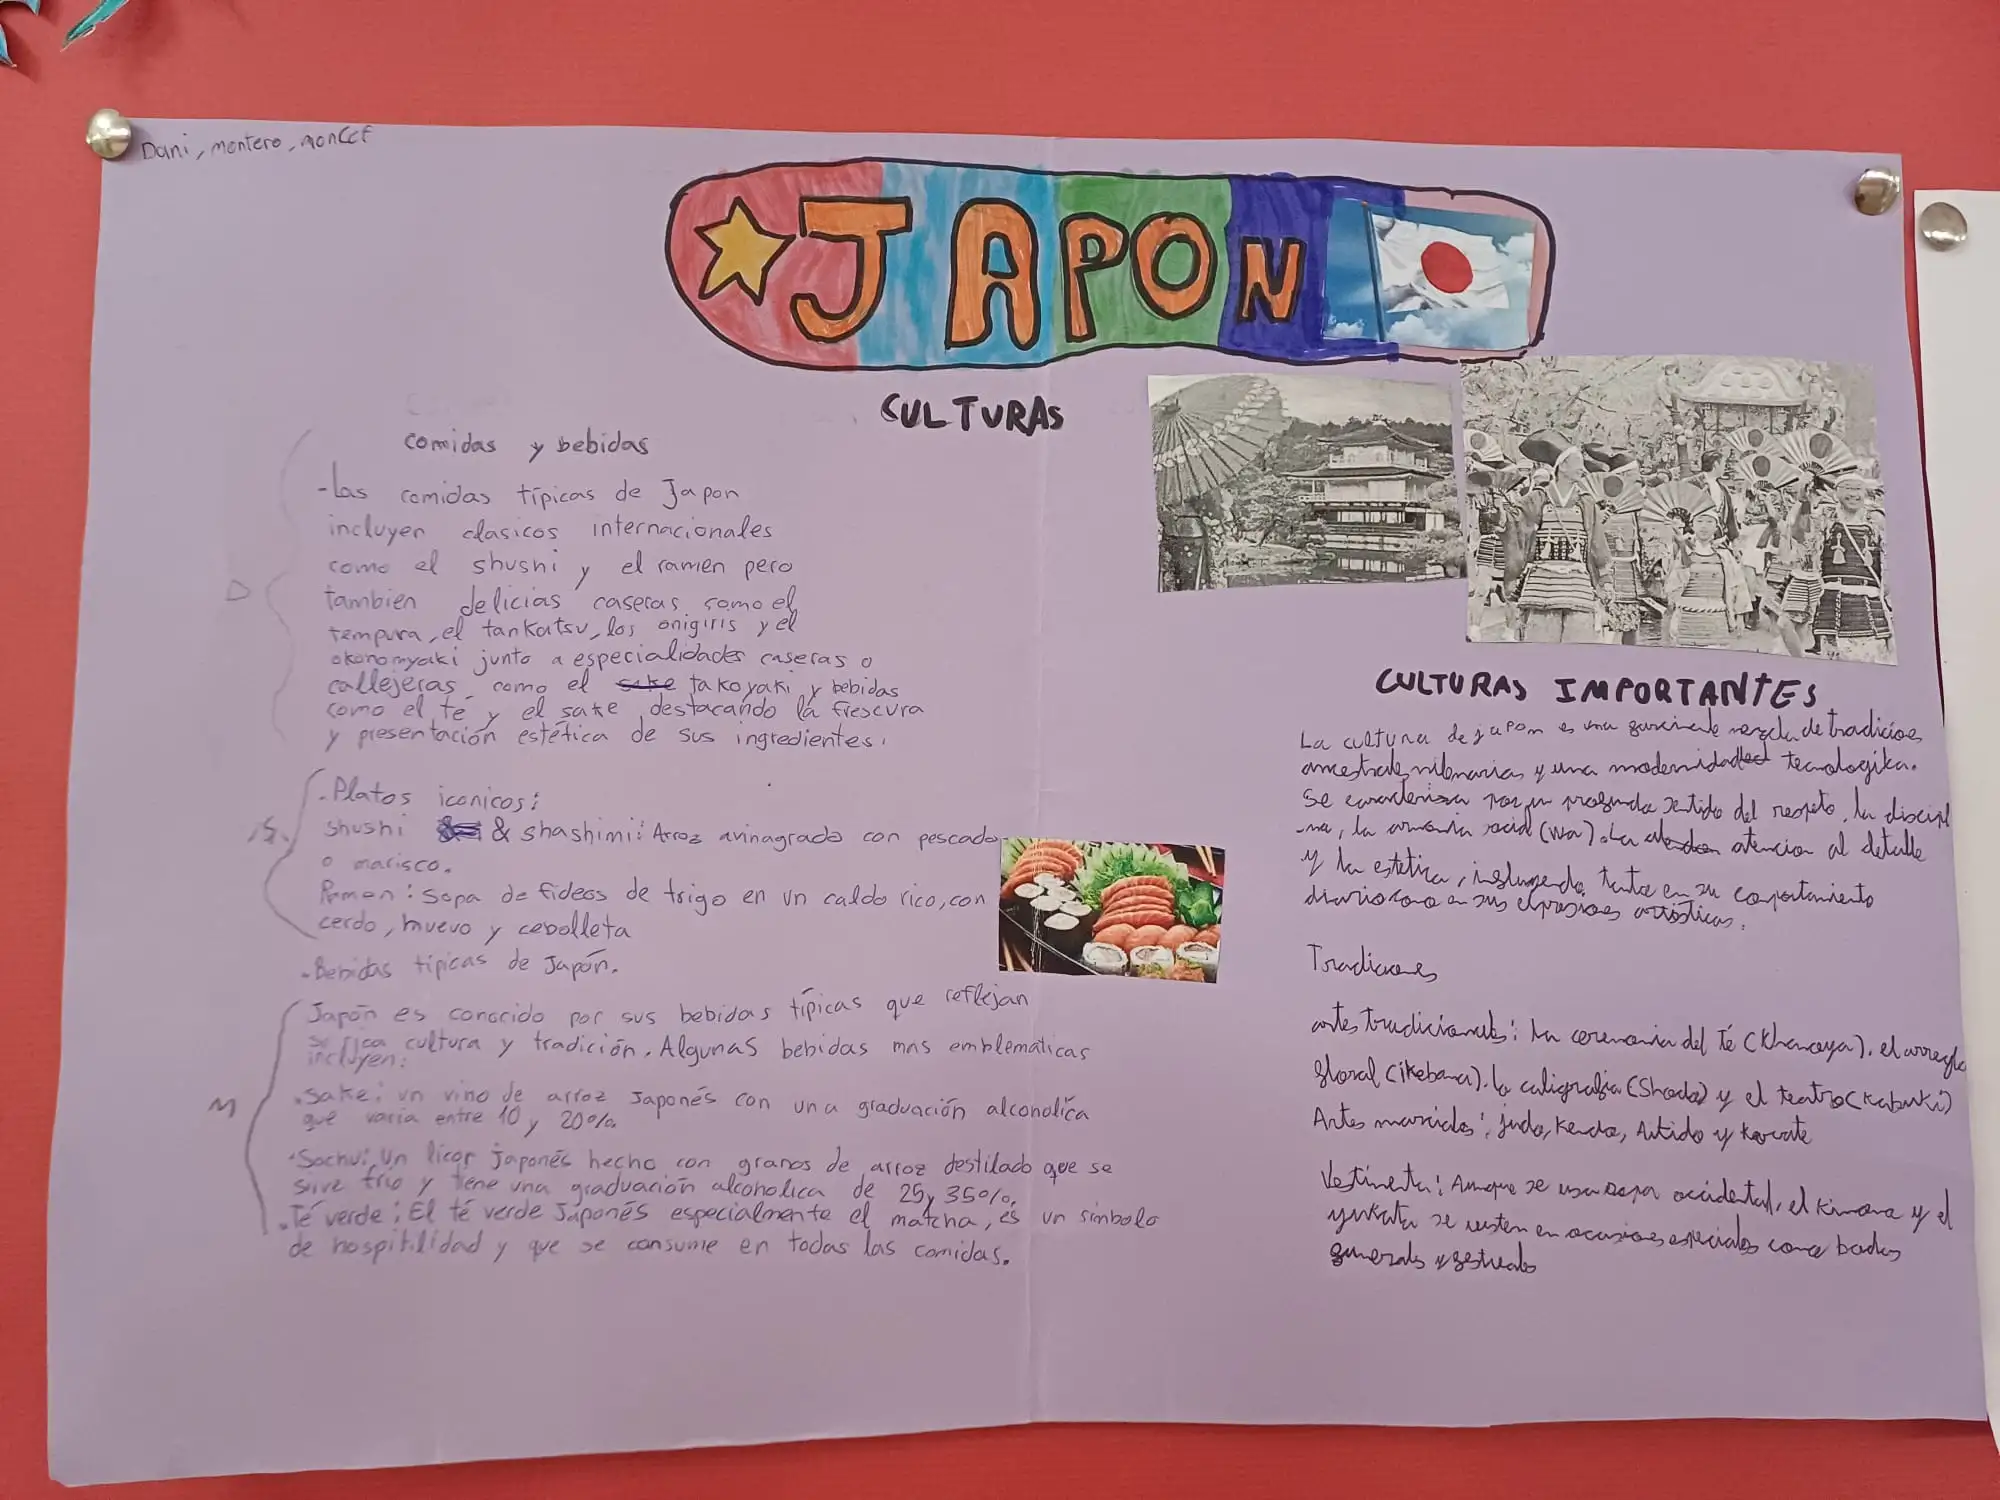 Dani, montero, moncef
JAPON
CULTURAS
comidas y bebidas
-Las comidas típicas de Japon
incluyen clasicos internacionales
como el shushi y el ramen pero
tambien delicias caseras como el
tempura, el tankatsu, los onigiris y el
okonomyaki junto a especialidades caseras o
callejeras, como el sake takoyaki y bebidas
como el té y el sake, destacando la frescura
y presentación estética de sus ingredientes.
D
.Platos iconicos:
shushi & shashimi: Arroz avinagrado con pescado
o marisco.
Ramen: Sopa de fideos de trigo en un caldo rico, con
cerdo, huevo y cebolleta
.Bebidas típicas de Japón.
Japón es conocido por sus bebidas típicas que reflejan
su rica cultura y tradición. Algunas bebidas mas emblematicas
incluyen:
M
.Sake: un vino de arroz Japonés con una graduación alcoholíca
que varia entre 10 y 20%.
.Sochu: Un licor japonés hecho con granos de arroz destilado que se
sirve frío y tiene una graduación alcoholica de 25 y 35%.
.Té verde: El té verde Japonés especialmente el matcha, es un símbolo
de hospitilidad y que se consume en todas las comidas.
CULTURAS IMPORTANTES
La cultura de japon es una mezcla de tradicioes
ancestrales milenarias y una modernidad tecnologika.
Se caracteriza por un profundo sentido del respeto, la discipl
-ina, la armonia social (wa). La atencion al detalle
y la estetica, tanto en su comportamiento
diario como en sus expresiones artisticas.
Tradiciones
artes tradicionales: La ceremonia del té (), el arreglo
floral (ikebana), la caligrafia (Shodo) y el teatro (Kabuki)
Artes marciales: judo, Kendo, Aikido y Karate
Vestimenta: Aunque se usa ropa occidental, el Kimono y el
yukata se visten en ocasiones especiales como bodas
funerales y festivales